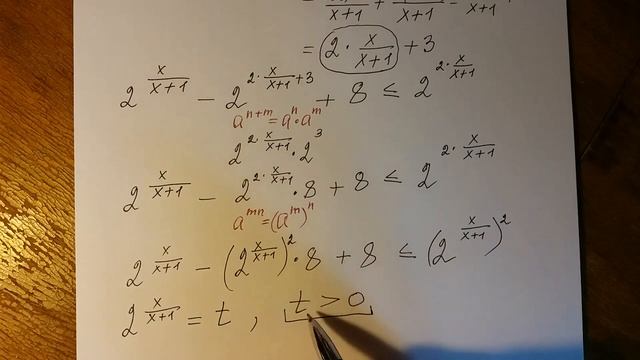 = x/(x+1) + x/(x+1) - x/(x+1)
= 2 · x/(x+1) + 3
2^(x/(x+1)) − 2^(2·x/(x+1)+3) + 8 ≤ 2^(2·x/(x+1))
a^(n+m) = a^n · a^m
2^(2·x/(x+1)) · 2^3
2^(x/(x+1)) − 2^(2·x/(x+1)) · 8 + 8 ≤ 2^(2·x/(x+1))
a^(mn) = (a^m)^n
2^(x/(x+1)) − (2^(x/(x+1)))^2 · 8 + 8 ≤ (2^(x/(x+1)))^2
2^(x/(x+1)) = t , t > 0